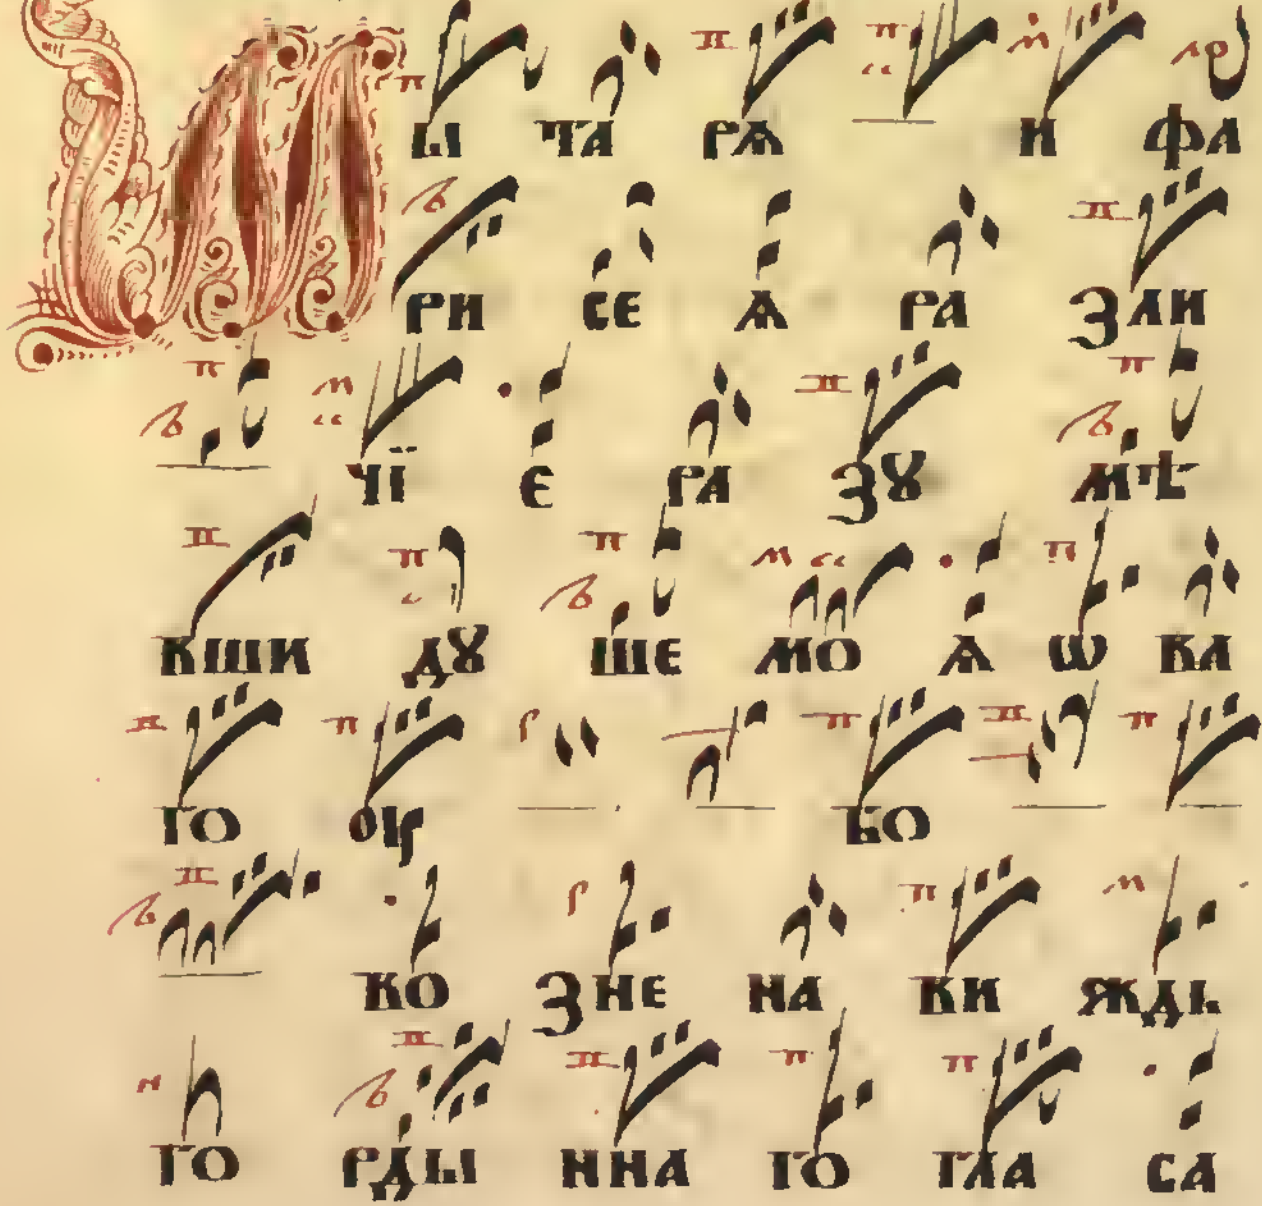 МЫ ТА РѦ И ФА
РИ СЕ Ѧ РА ЗЛИ
ЧЇ Е РА ЗꙊ МѢ
ВШИ ДꙊ ШЕ МО Ѧ Ѡ ВА
ГО ОУ БО
ВО ЗНЕ НА ВИ ЖДЬ
ГО РДЫ ННА ГО ГЛА СА